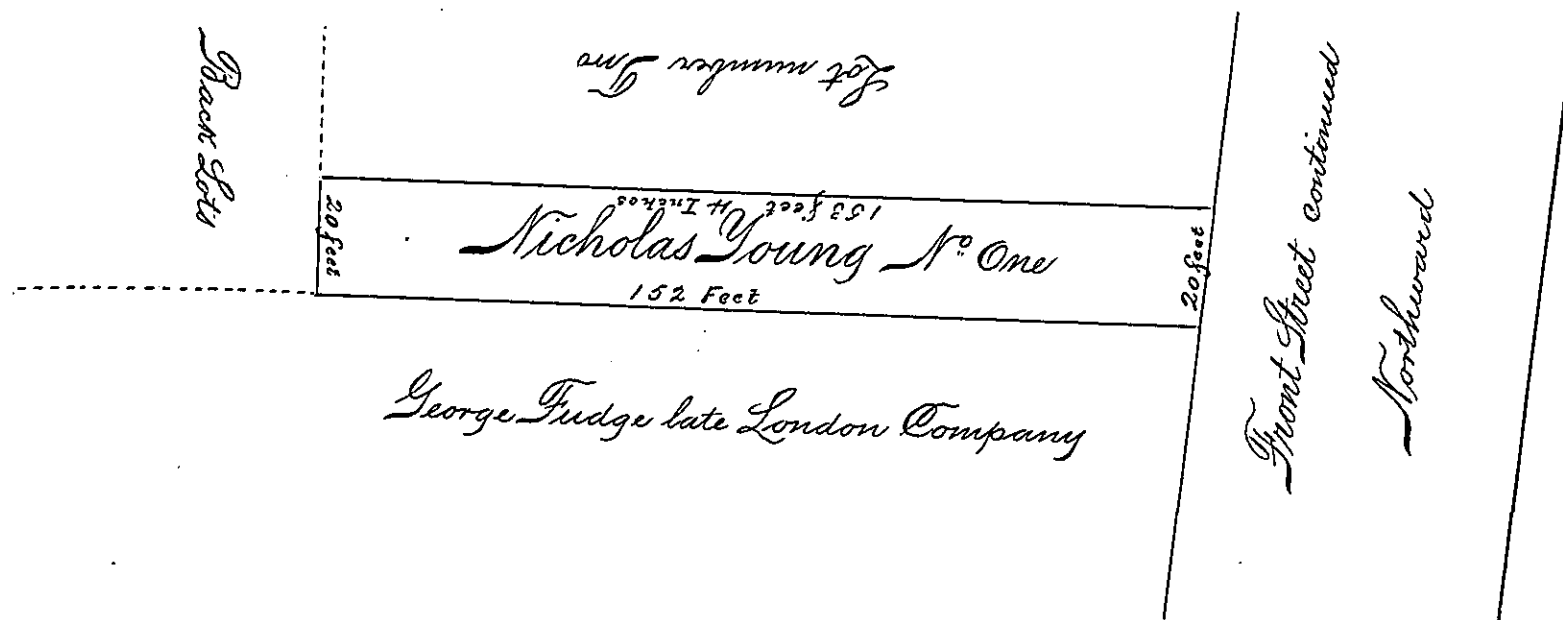 Back Lots
Lot number Two
153 feet 4 Inches
20 feet
Nicholas Young No One
20 feet
152 Feet
George Fudge late London Company
Front Street continued
Northward